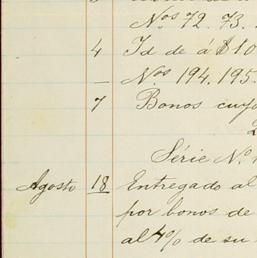 Nos 72. 73.
4 Id de á $10
— Nos 194. 195.
7 Bonos cuyo
Série No.
Agosto 18 Entregado al
por bonos de
al 4% de su